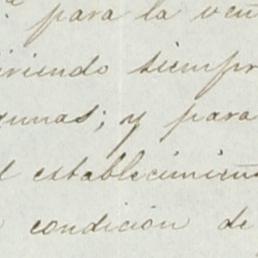 para la ven
iriendo siempr
gunas; y para
l establecimien
condición de